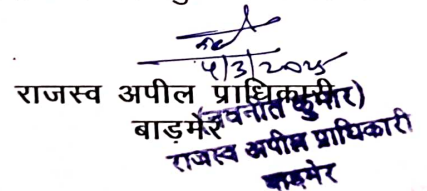 4/3/2025
राजस्व अपील प्राधिकारी
(नवनीत कुमार)
बाड़मेर
राजस्व अपील प्राधिकारी
बाडमेर